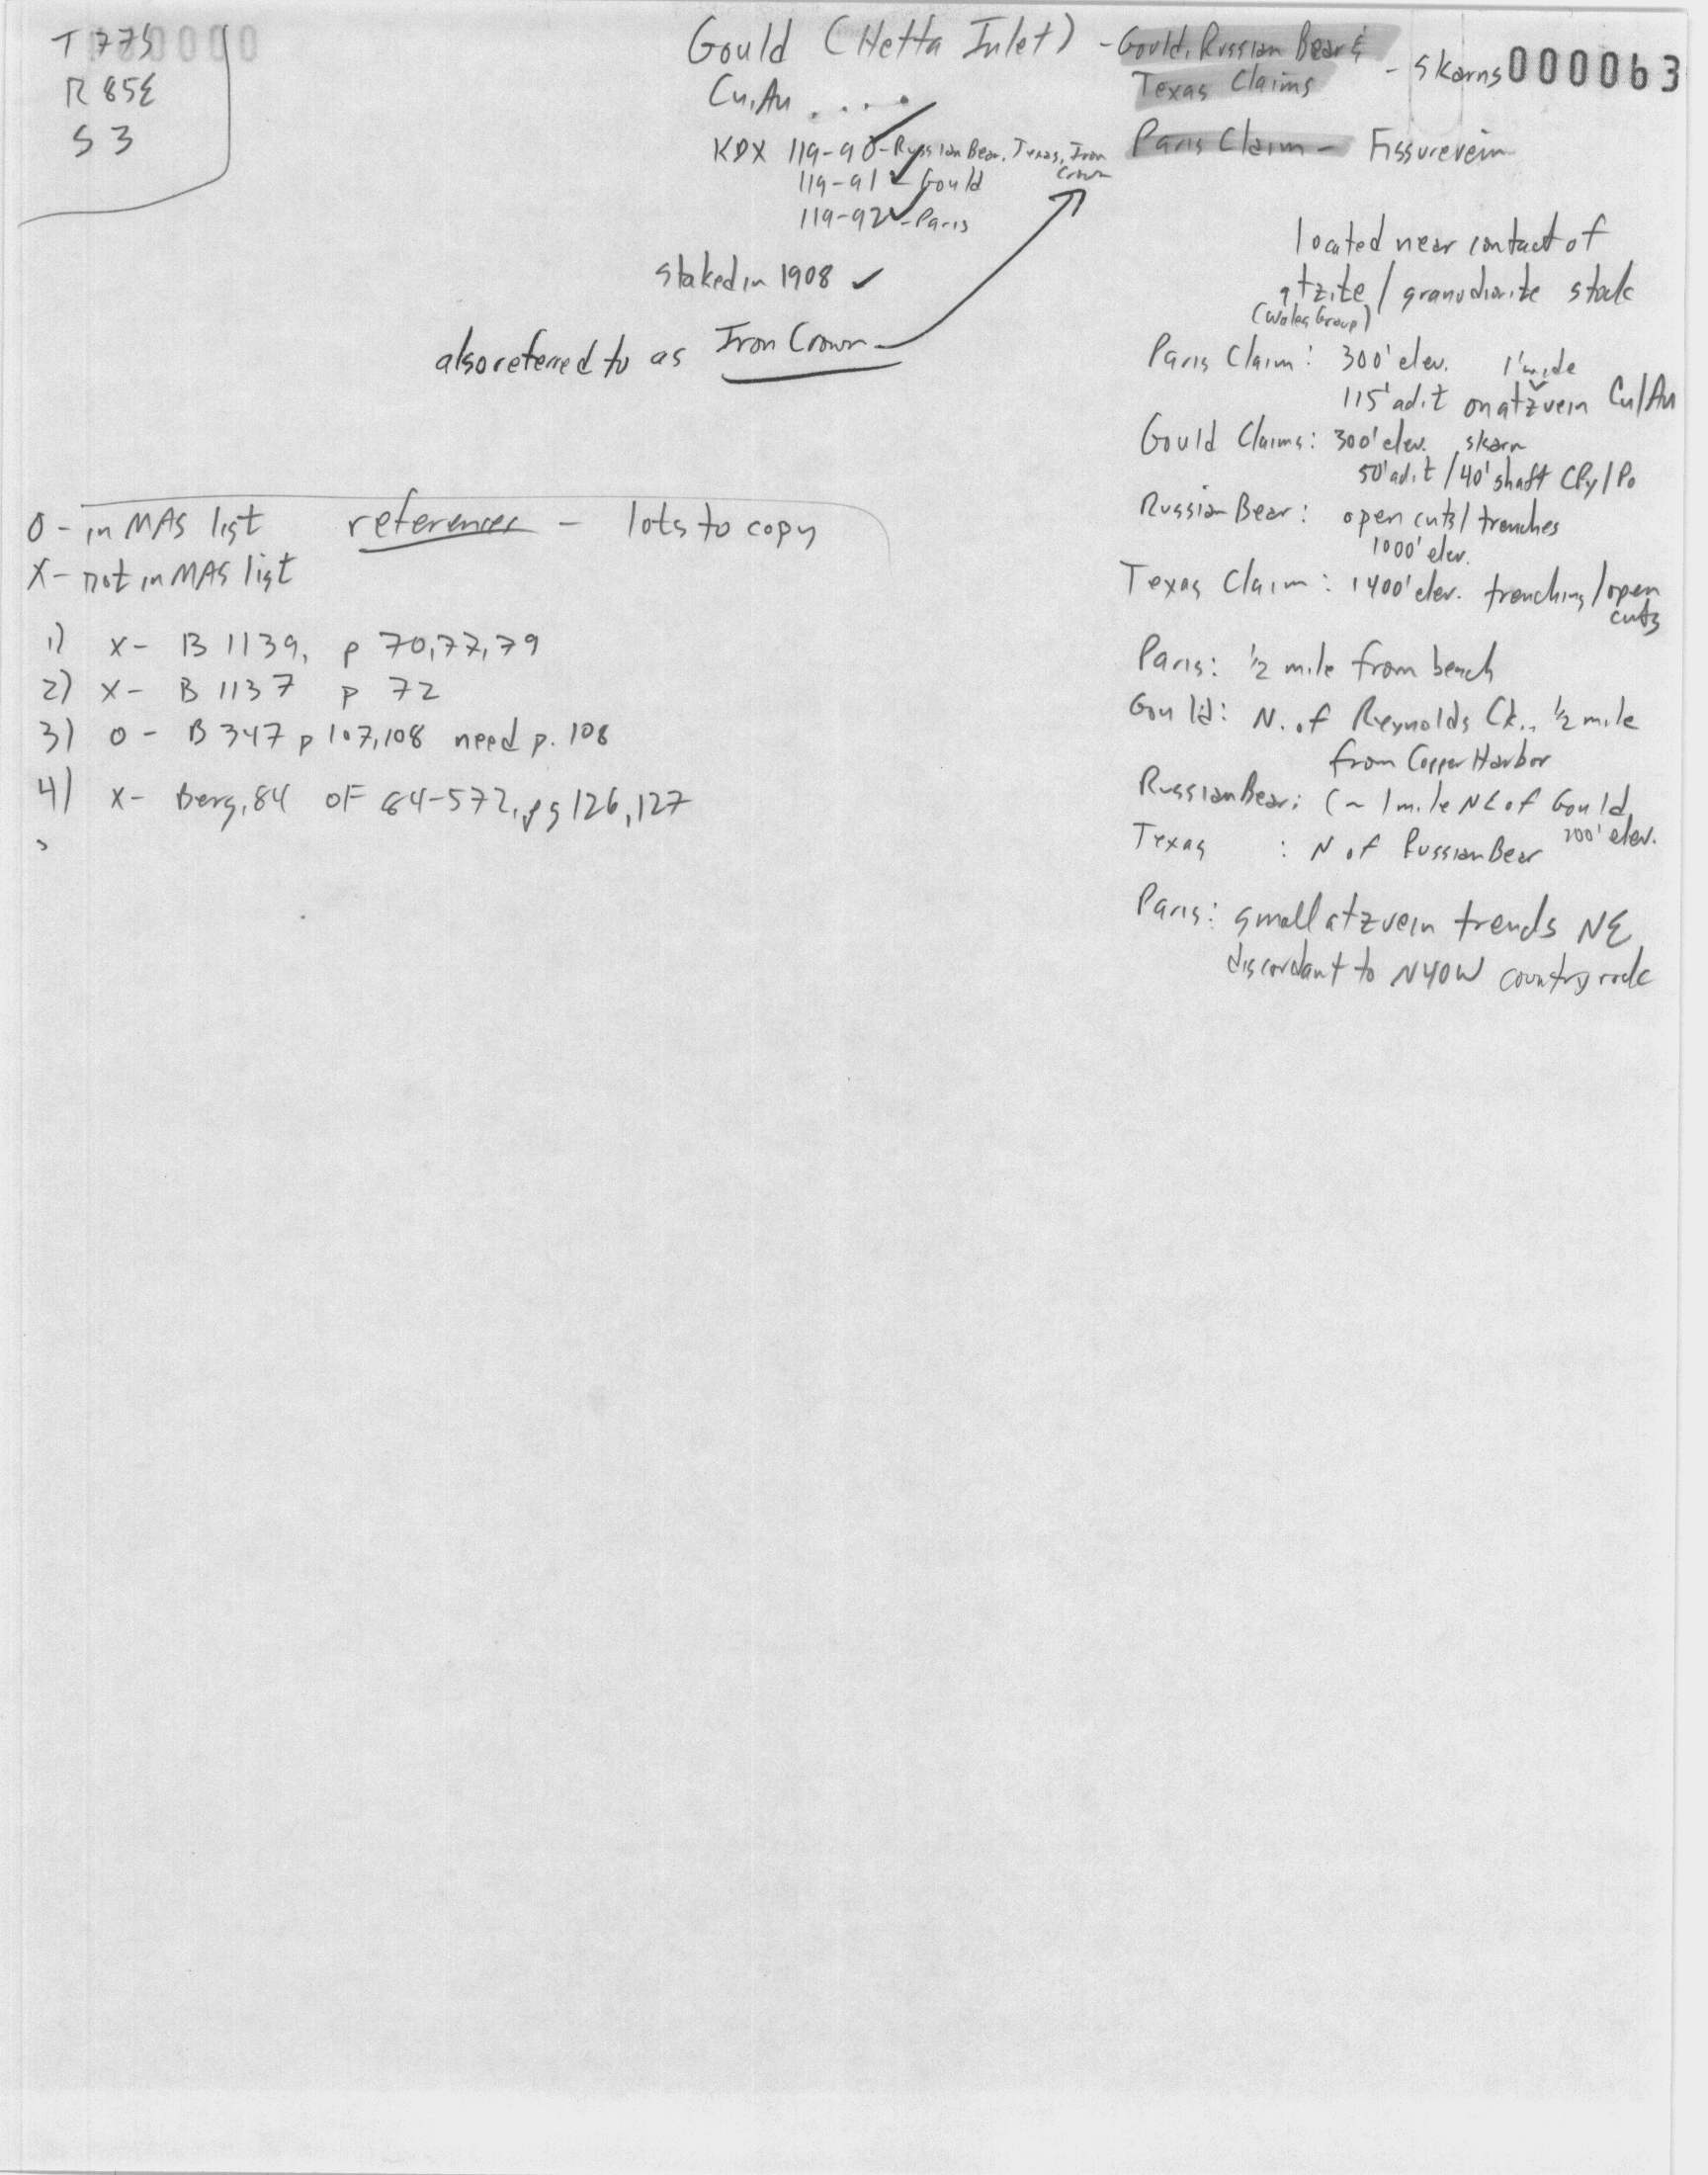 T 77S
R 85E
S 3
0000
Gould (Hetta Inlet) - Gould, Russian Bear &
Texas Claims - skarns
000063
Cu, Au . . . .
Paris Claim - Fissure vein
KDX 119-90 - Russian Bear, Texas, Iron
Crown
119-91 ✓ - Gould
119-92 ✓ - Paris
staked in 1908 ✓
also referred to as Iron Crown
located near contact of
qtzite / granodiorite stock
(Wales Group)
Paris Claim: 300' elev. 1' wide
115' adit on qtz vein Cu/Au
Gould Claims: 300' elev. skarn
50' adit / 40' shaft CPy/Po
Russian Bear: open cuts/trenches
1000' elev.
Texas Claim: 1400' elev. trenching/open
cuts
Paris: 1/2 mile from beach
Gould: N. of Reynolds Ck., 1/2 mile
from Copper Harbor
Russian Bear: (~ 1 mile NE of Gould
elev.
Texas : N of Russian Bear
Paris: small qtz vein trends NE
discordant to N40W country rock
O - in MAS list references - lots to copy
X - not in MAS list
1) x- B 1139, p 70,77,79
2) x- B 1137 p 72
3) o - B 347 p 107,108 need p. 108
4) x- Berg, 84 OF 84-572, pg 126,127